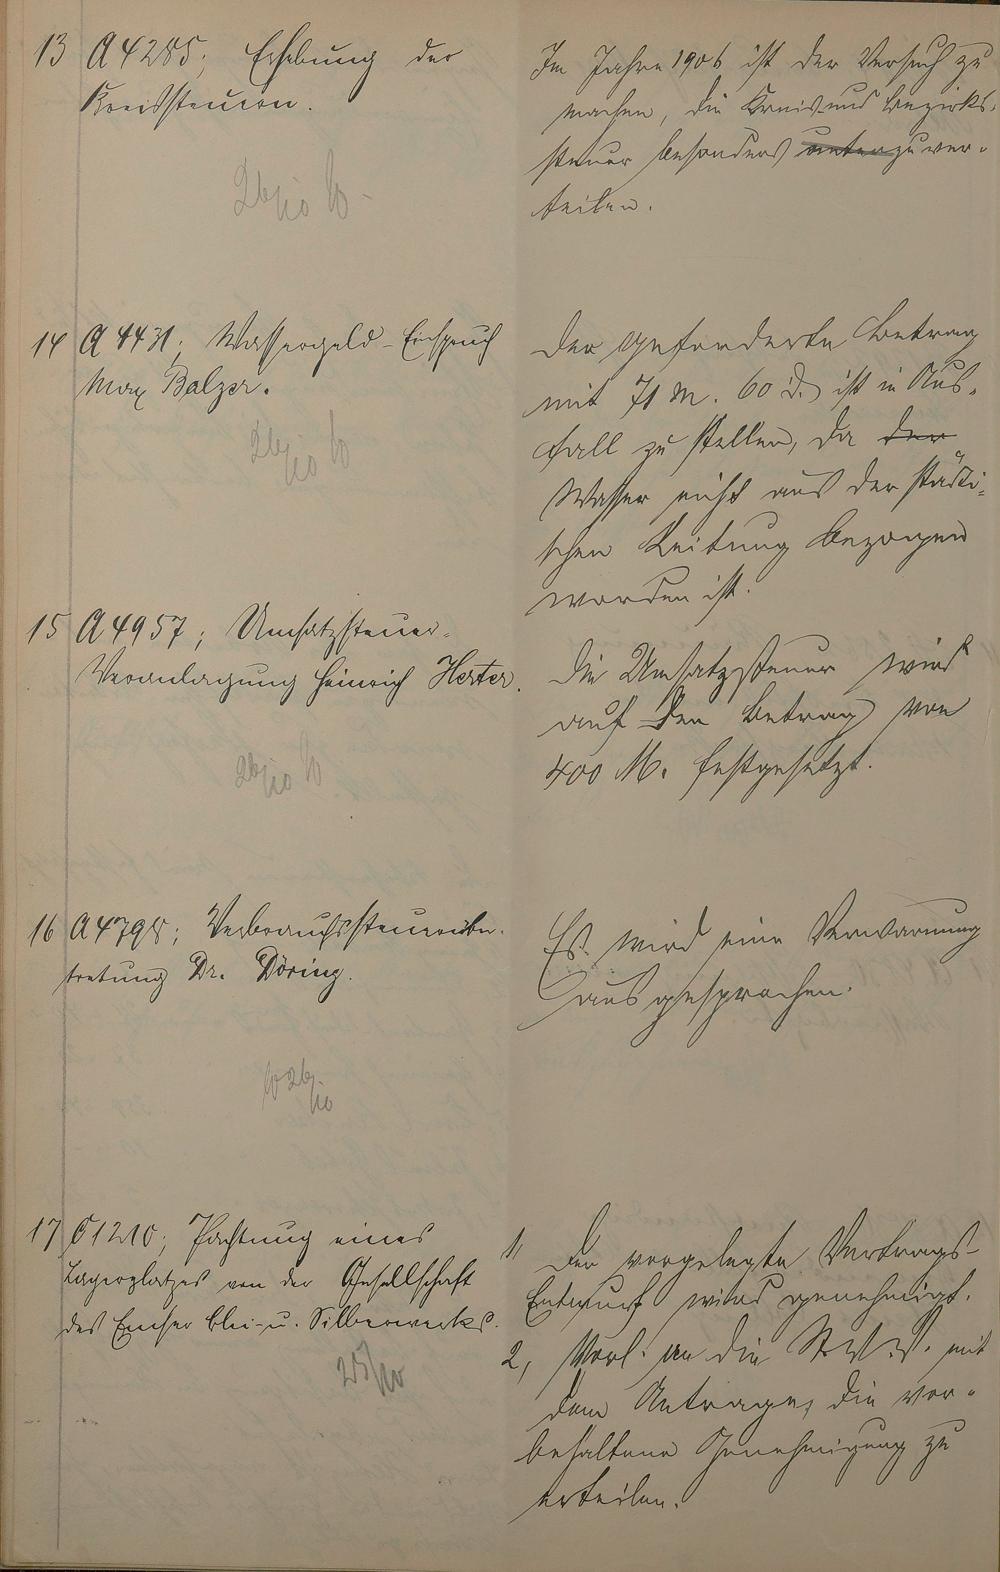 13 A 4285; Erhebung der
Kreissteuern.
26/10
Im Jahre 1906 ist der Versuch zu
machen, die Kreis- und Bezirks-
steuer besonders unter zu ver-
teilen.
14 A 4431; Wassergeld-Einspruch
Max Balzer.
26/10
Der geforderte Betrag
mit 71 M. 60 d. ist in Aus-
fall zu stellen, da der
Wasser nicht aus der städti-
schen Leitung bezogen
worden ist.
15 A 4957; Umsatzsteuer-
Veranlagung Heinrich Herter.
26/10
Die Umsatzsteuer wird
auf den Betrag von
400 M. festgesetzt.
16 A 4798; Verbrauchssteuerüber-
tretung Dr. Döring.
26/10
Es wird eine Verwarnung
ausgesprochen.
17 C 1210; Pachtung eines
Lagerplatzes von der Gesellschaft
des Emser Blei- u. Silberwerks.
25/10
1, Der vorgelegte Vertrags-
Entwurf wird genehmigt.
2, Vorl. an die mit
dem Antrage, die vor-
behaltene Genehmigung zu
erteilen.